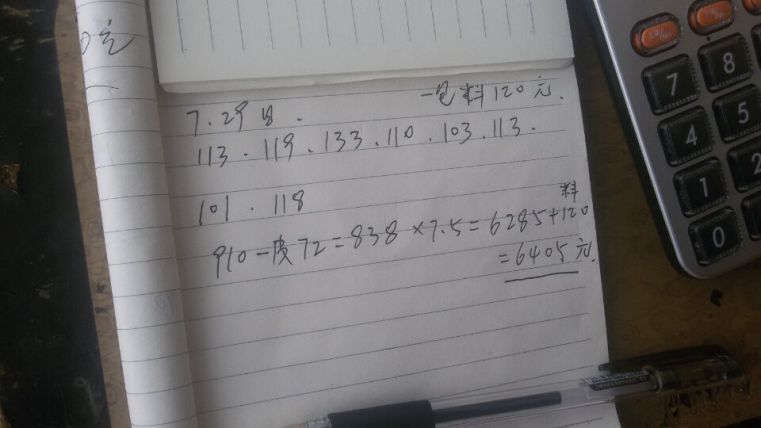 7.29日. 一包料120元.
113.119.133.110.103.113.
101.118
料
910-皮72=838×7.5=6285+120
=6405元.
7
8
4
5
1
2
0